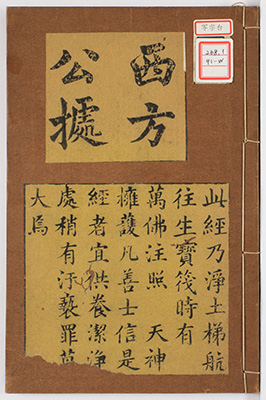 西方
公據
此經乃淨土梯航
往生寶筏時有
萬佛注照 天神
擁護凡善士信是
經者宜供養潔淨
處稍有汙褻罪莫
大焉
208.1
41-W